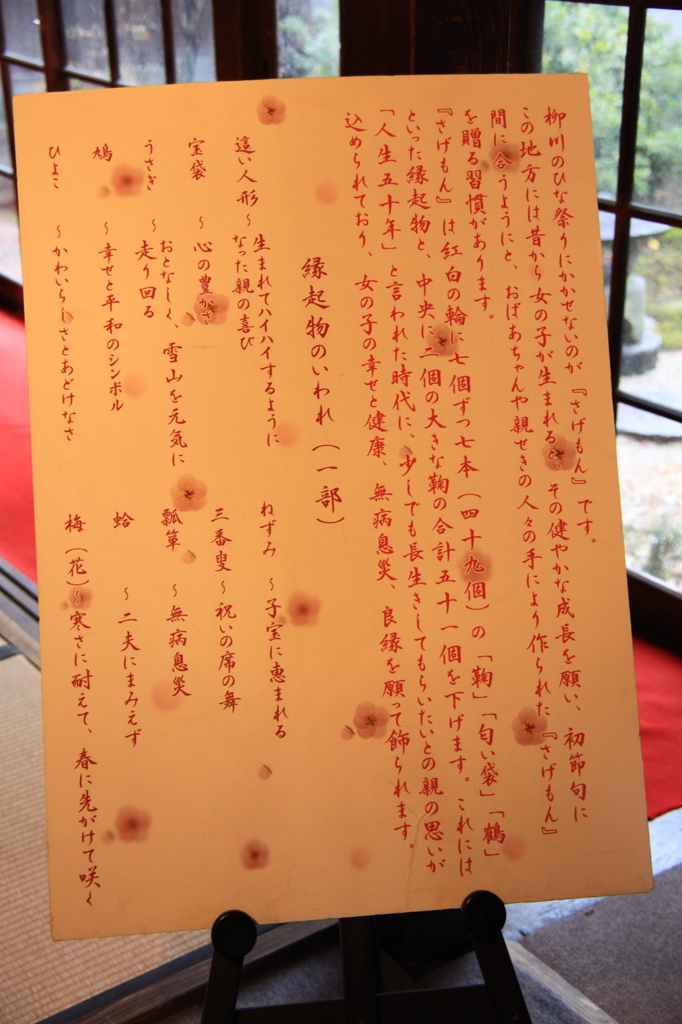 柳川のひな祭りにかかせないのが『さげもん』です。
この地方には昔から女の子が生まれると、その健やかな成長を願い、初節句に
間に合うようにと、おばあちゃんや親せきの人々の手により作られた『さげもん』
を贈る習慣があります。
『さげもん』は紅白の輪に七個ずつ七本(四十九個)の「鞠」「匂い袋」「鶴」
といった縁起物と、中央に二個の大きな鞠の合計五十一個を下げます。これには
「人生五十年」と言われた時代に、少しでも長生きしてもらいたいとの親の思いが
込められており、女の子の幸せと健康、無病息災、良縁を願って飾られます。
縁起物のいわれ(一部)
這い人形~生まれてハイハイするように
なった親の喜び
宝袋~心の豊かさ
うさぎ~おとなしく、雪山を元気に
走り回る
鳩~幸せと平和のシンボル
ひよこ~かわいらしさとあどけなさ
ねずみ~子宝に恵まれる
三番叟~祝いの席の舞
瓢箪~無病息災
蛤~二夫にまみえず
梅(花)~寒さに耐えて、春に先がけて咲く